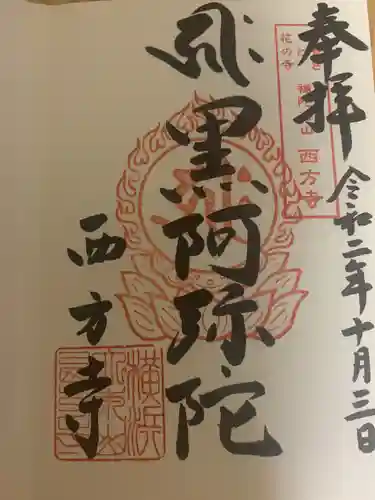 奉拝
令和二年十月三日
花の寺
山 西方寺
黒阿弥陀
西方寺
横浜